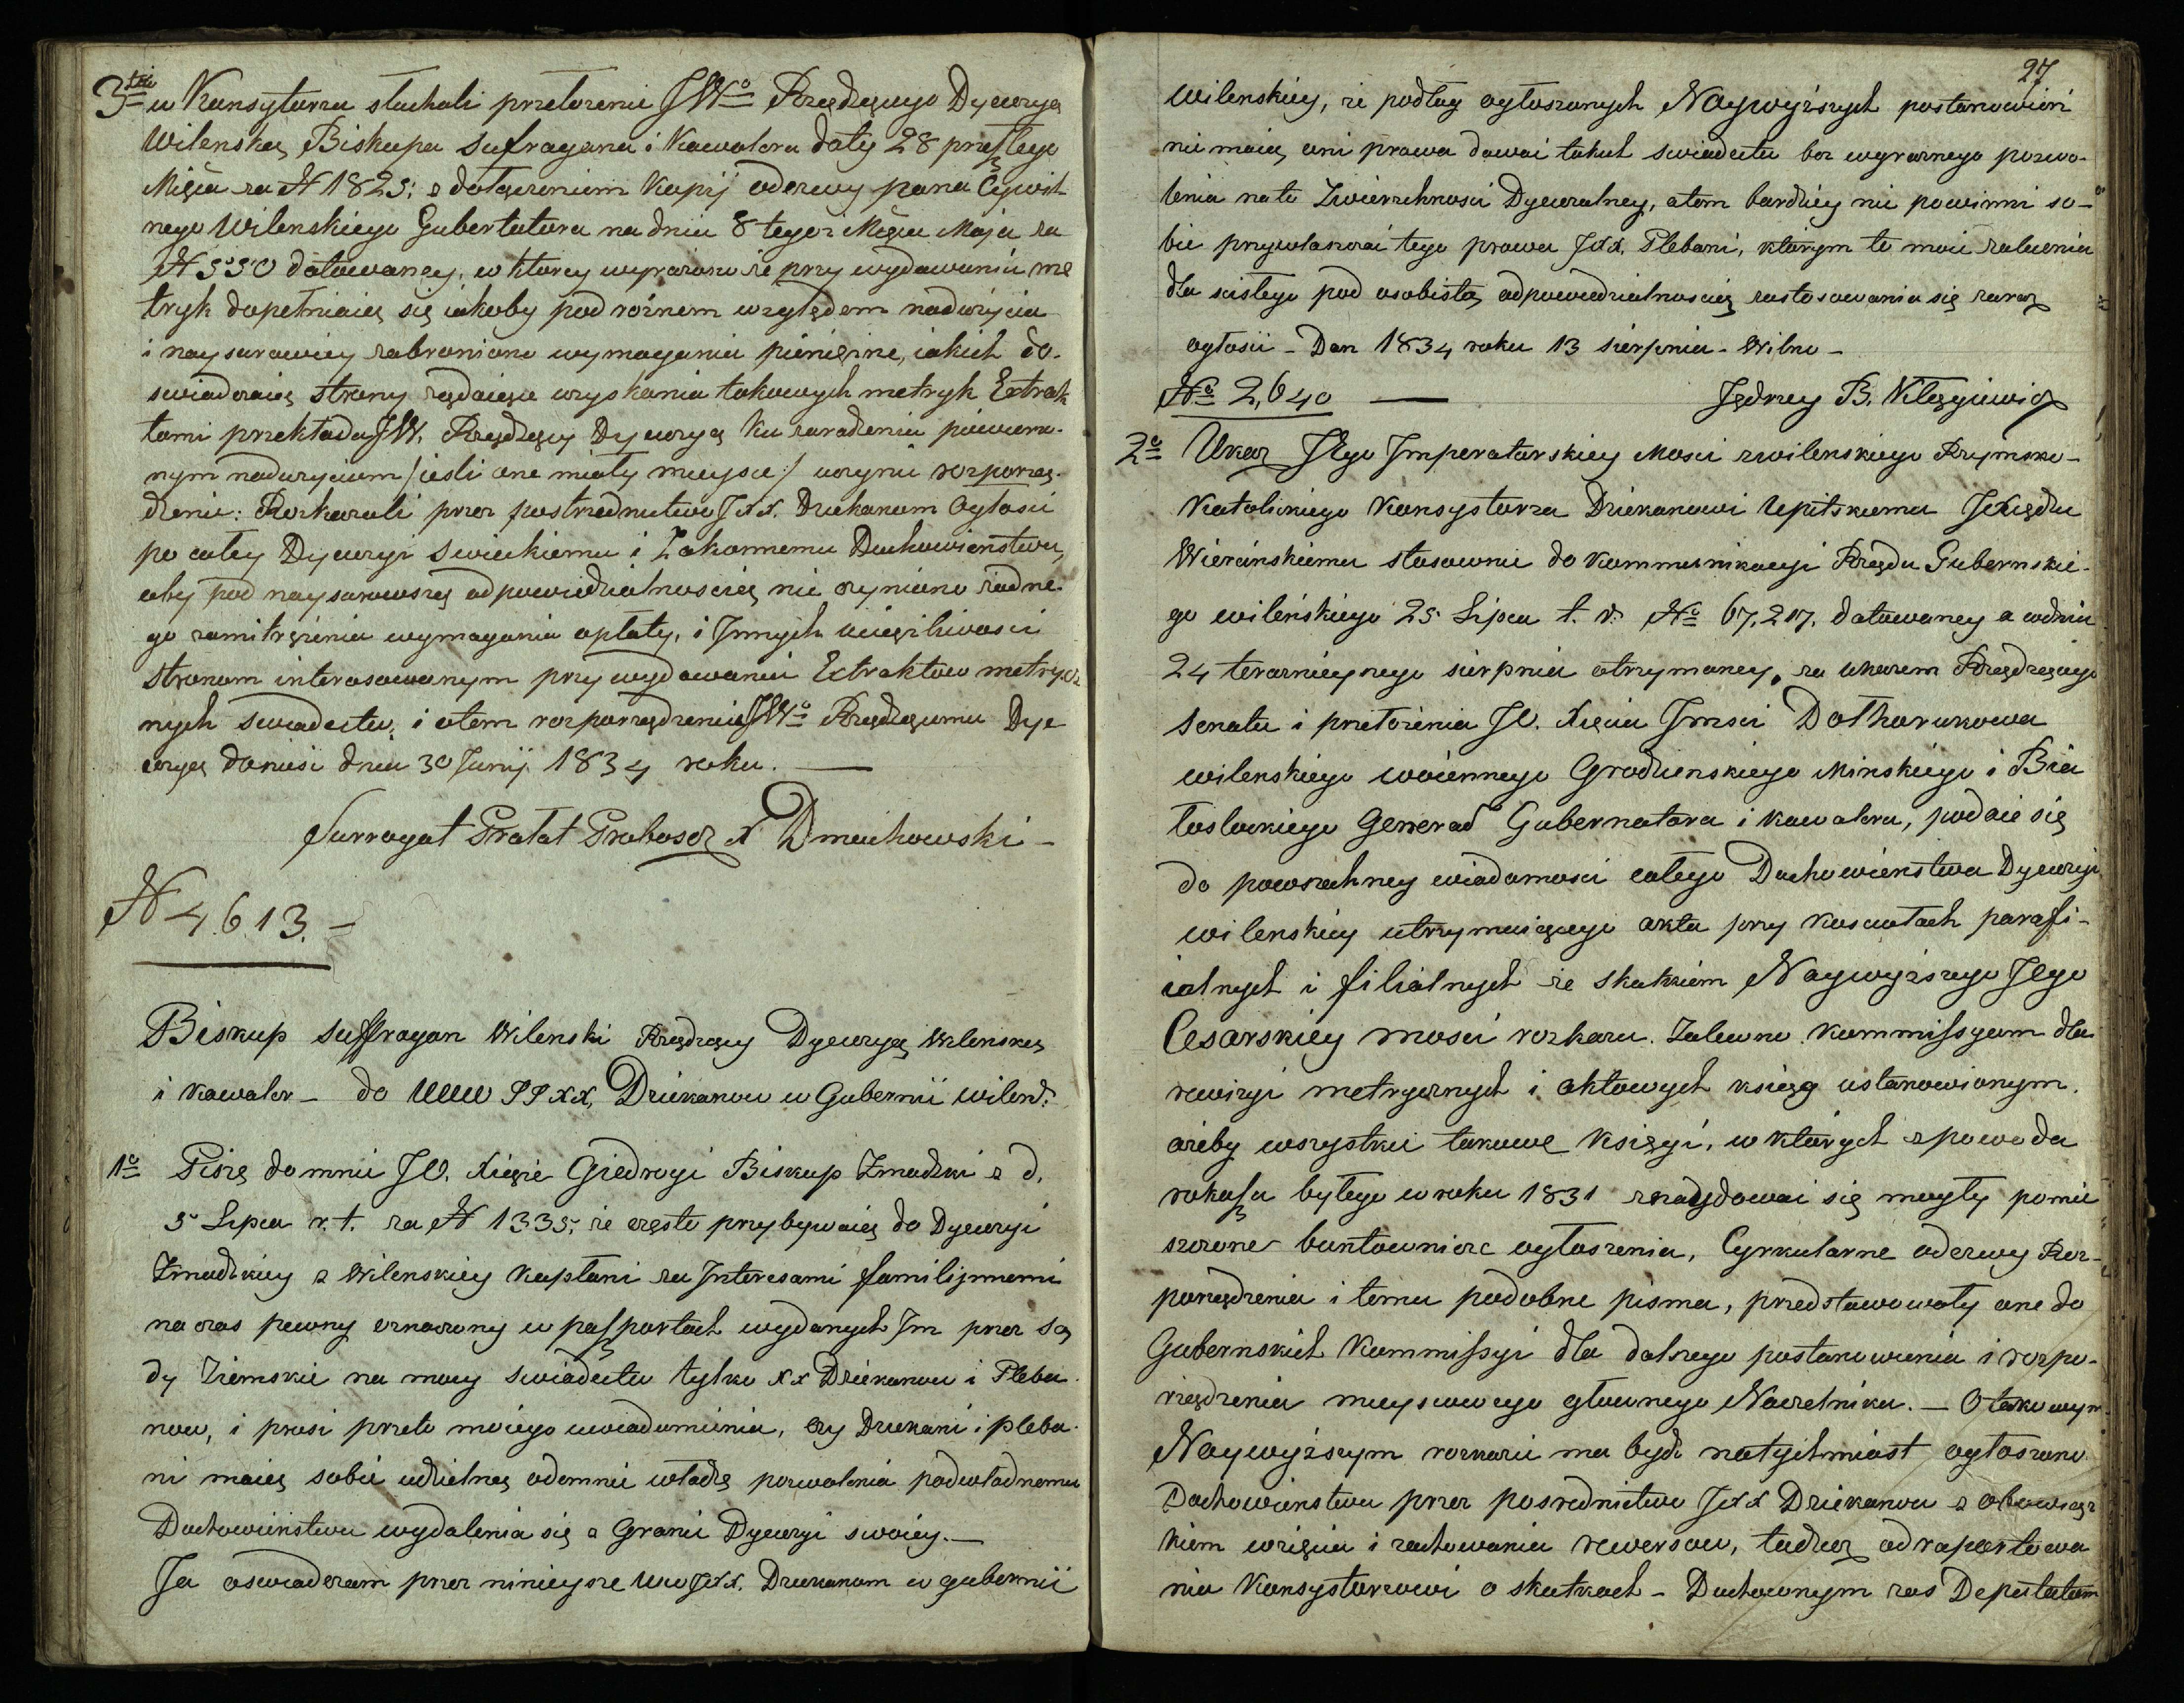 3tio w Konsystorzu słuchali przełożenie JWo Rządzącego Dyecezyą
Wilenską Biskupa Sufragana i Kawalera daty 28 przeszłego
Mięśca za N 1825: z dołączeniem Kopij odezwy pana Cywil
nego Wilenskiego Gubernatora na dniu 8 tegoż Mięśca Maja za
N 550 datowaney, w ktorey wyrażono że przy wydawaniu me
tryk dopełniaią się iakoby pod rożnem względem nadużycia
i naysurowiey zabronione wymagania pieniężne, iakich do-
swiadczaią strony żądaiące uzyskania takowych metryk Extrak
tami przekłada JW. Rządzący Dyecezyą ku zaradzeniu pomienio-
nym nadużyciom /:iesli one miały mieysce:/ uczynić rozporzą-
dzenie: Rozkazali przez posrzednictwo JXX. Dziekanom Ogłosić
po całey Dyecezyi Swieckiemu i Zakonnemu Duchowieństwu,
aby pod naysurowszą odpowiedzialnoscią nie czyniono żadne-
go zamitrężenia wymagania opłaty, i Innych uciążliwosci
stronom interesowanym przy wydawaniu Extraktow metrycz
nych swiadectw, i otem rozporządzeniu JWo Rządzącemu Dye
cezyą doniesć dnia 30 Junij 1834 roku. —
Surrogat Prałat Proboszcz X Dmuchowski -
N 4613. -
Biskup Suffragan Wilenski Rządzący Dyecezyą Wilenską
i Kawaler - do WWW JJXX, Dziekanow w Gubernii Wilens:
1o Piszę do mnie JO. Xiąże Giedroyć Biskup Zmudzki z d.
5 Lipca r. t. za N 1335, że często przybywaią do Dyecezyi
Zmudzkiey z Wilenskiey Kapłani za Interesami familijnemi
na czas pewny oznaczony w paszportach wydanych Im przez Są
dy Ziemskie na mocy swiadectw tylko XX Dziekanow i Pleba-
now, i prosi przeto moiego uwiadomienia, czy Dziekani i pleba-
ni maią sobie udzielną odemnie władzę pozwolenia podwładnemu
Duchowieństwu wydalenia się z Granic Dyecezyi swoiey. —
Ja oswiadczam przez ninieysze WW JXX. Dziekanom w gubernii
27
Wilenskiey, że podług ogłoszonych Naywyższych postanowień
nie maią, oni prawa dawać takich swiadectw bez wyraznego pozwo-
lenia na to Zwierzchnosci Dyecezalney, atem bardziey nie powinni so-
bie przywłaszczać tego prawa JXX, Plebani, ktorym to moie zalecenia
dla scisłego pod osobistą odpowiedzialnoscią zastosowania się zaraz
ogłosić - Dan 1834 roku 13 sierpnia - Wilno -
No 2,640 — Jędrzey B. Kłągiewicz
2o Ukaz JEgo Imperatorskiey Mosci zwilenskiego Rzymsko-
Katolickiego Konsystorza Dziekanowi Upitskiemu JXiędzu
Wiercińskiemu stosownie do Kommunikacyi Rządu Gubernskie-
go wileńskiego 25 Lipca t. r. No 67,217. datowaney a wdniu
24 terazniejszego sierpnia otrzymaney, za ukazem Rządzącego
Senatu i przełożenia JO. Xięcia Jmsci Dołhorukowa
wilenskiego woiennego Grodzienskiego Minskiego i Bia
łostockiego General Gubernatora i kawalera, podaie się
do powszechney wiadomosci całego Duchowieństwa Dyecezyi
wilenskiey utrzymuiącego akta przy Kosciołach parafi-
ialnych i filialnych że skutkiem Naywyższego JEgo
Cesarskiey mosci rozkazu. Zalecono Kommissyom dla
rewizyi metrycznych i aktowych ksiąg ustanowionym.
ażeby wszystkie takowe Księgi, w ktorych z powodu
rokoszu byłego w roku 1831 znaydować się mogły pomie
szczone buntownicze ogłoszenia, Cyrkularne odezwy Roz-
porządzenia i temu podobne pisma, przedstawowały one do
Gubernskich Kommissyi dla dalszego postanowienia i rozpo-
rządzenia mieyscowego głownego Naczelnika. — O takowym
Naywyższym rozkazie ma bydź natychmiast ogłoszono
Duchowieństwu przez posrednictwo JXX Dziekanow z obowiąz
kiem wzięcia i zachowania rewersow, tudzież odraportowa
nia Konsystorzowi o skutkach - Duchownym zas Deputatom